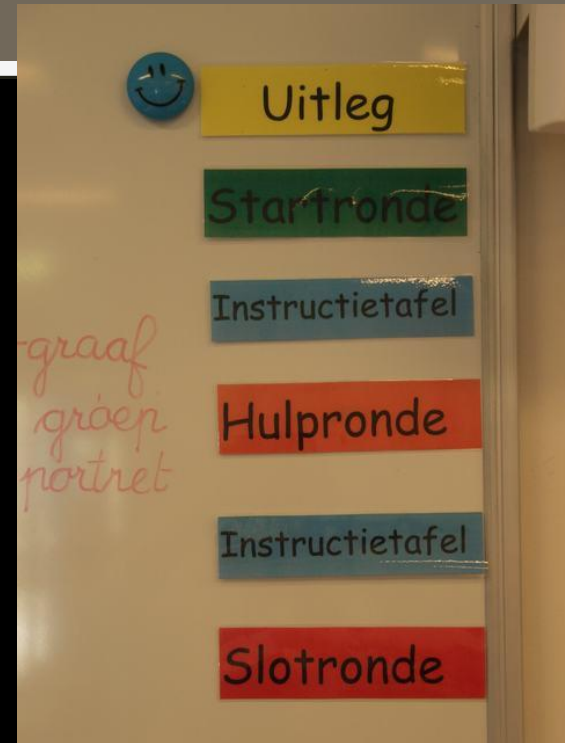 Uitleg
Startronde
Instructietafel
Hulpronde
Instructietafel
Slotronde
-graaf
groep
portret